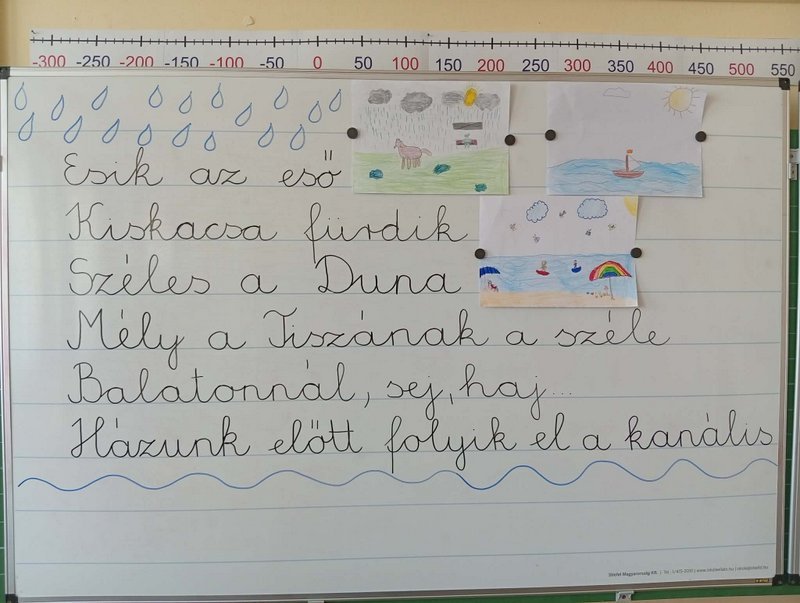 -300 -250 -200 -150 -100 -50 0 50 100 150 200 250 300 350 400 450 500 550
Esik az eső
Kiskacsa fürdik
Széles a Duna
Mély a Tiszának a széle
Balatonnál, sej, haj...
Házunk előtt folyik el a kanális